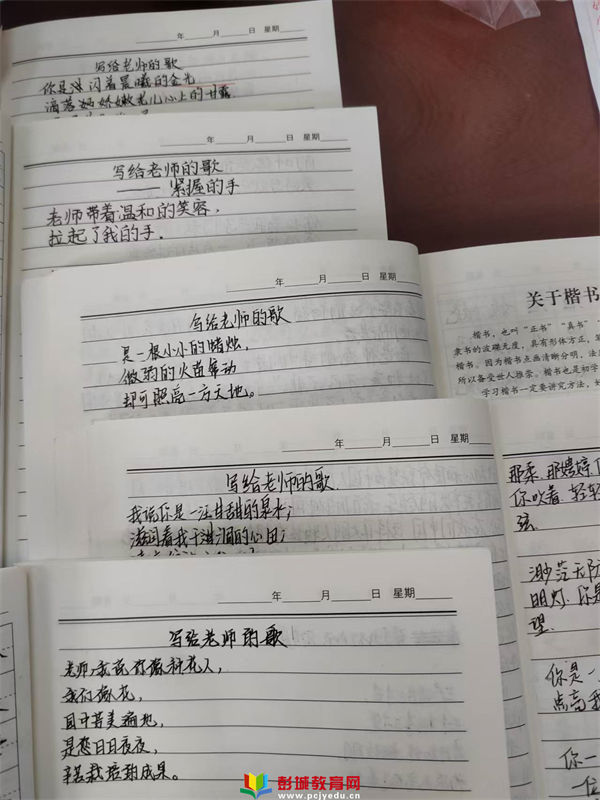 年 月 日 星期
写给老师的歌
你是 闪着晨曦的金光
滴落 娇嫩 儿心上的甘露
年 月 日 星期
写给老师的歌
—— 紧握的手
老师带着温和的笑容，
拉起了我的手，
年 月 日 星期
写给老师的歌
是一根小小的蜡烛，
微弱的火苗 动
却可照亮一方天地。
关于楷书
楷书，也叫“正书”“真书”
隶书的波磔光度，具有形体方正，笔
楷书。因为楷书点画清晰分明，法
所以备受世人推崇。楷书也是初学
学习楷书一定要讲究方法，好
年 月 日 星期
写给老师的歌
我说你是一汪甘甜的泉水；
滋润着我干涸的心田；
那柔，那娉婷，你
你吹着，轻轻
弦
渺茫无
明灯，你是
望
你是一
点亮我
你一
一位
年 月 日 星期
写给老师的歌
老师，我说你像种花人，
我们像花，
园中芳美遍地，
是您日日夜夜，
辛苦栽培到成果。
彭城教育网
www.pcjyedu.cn